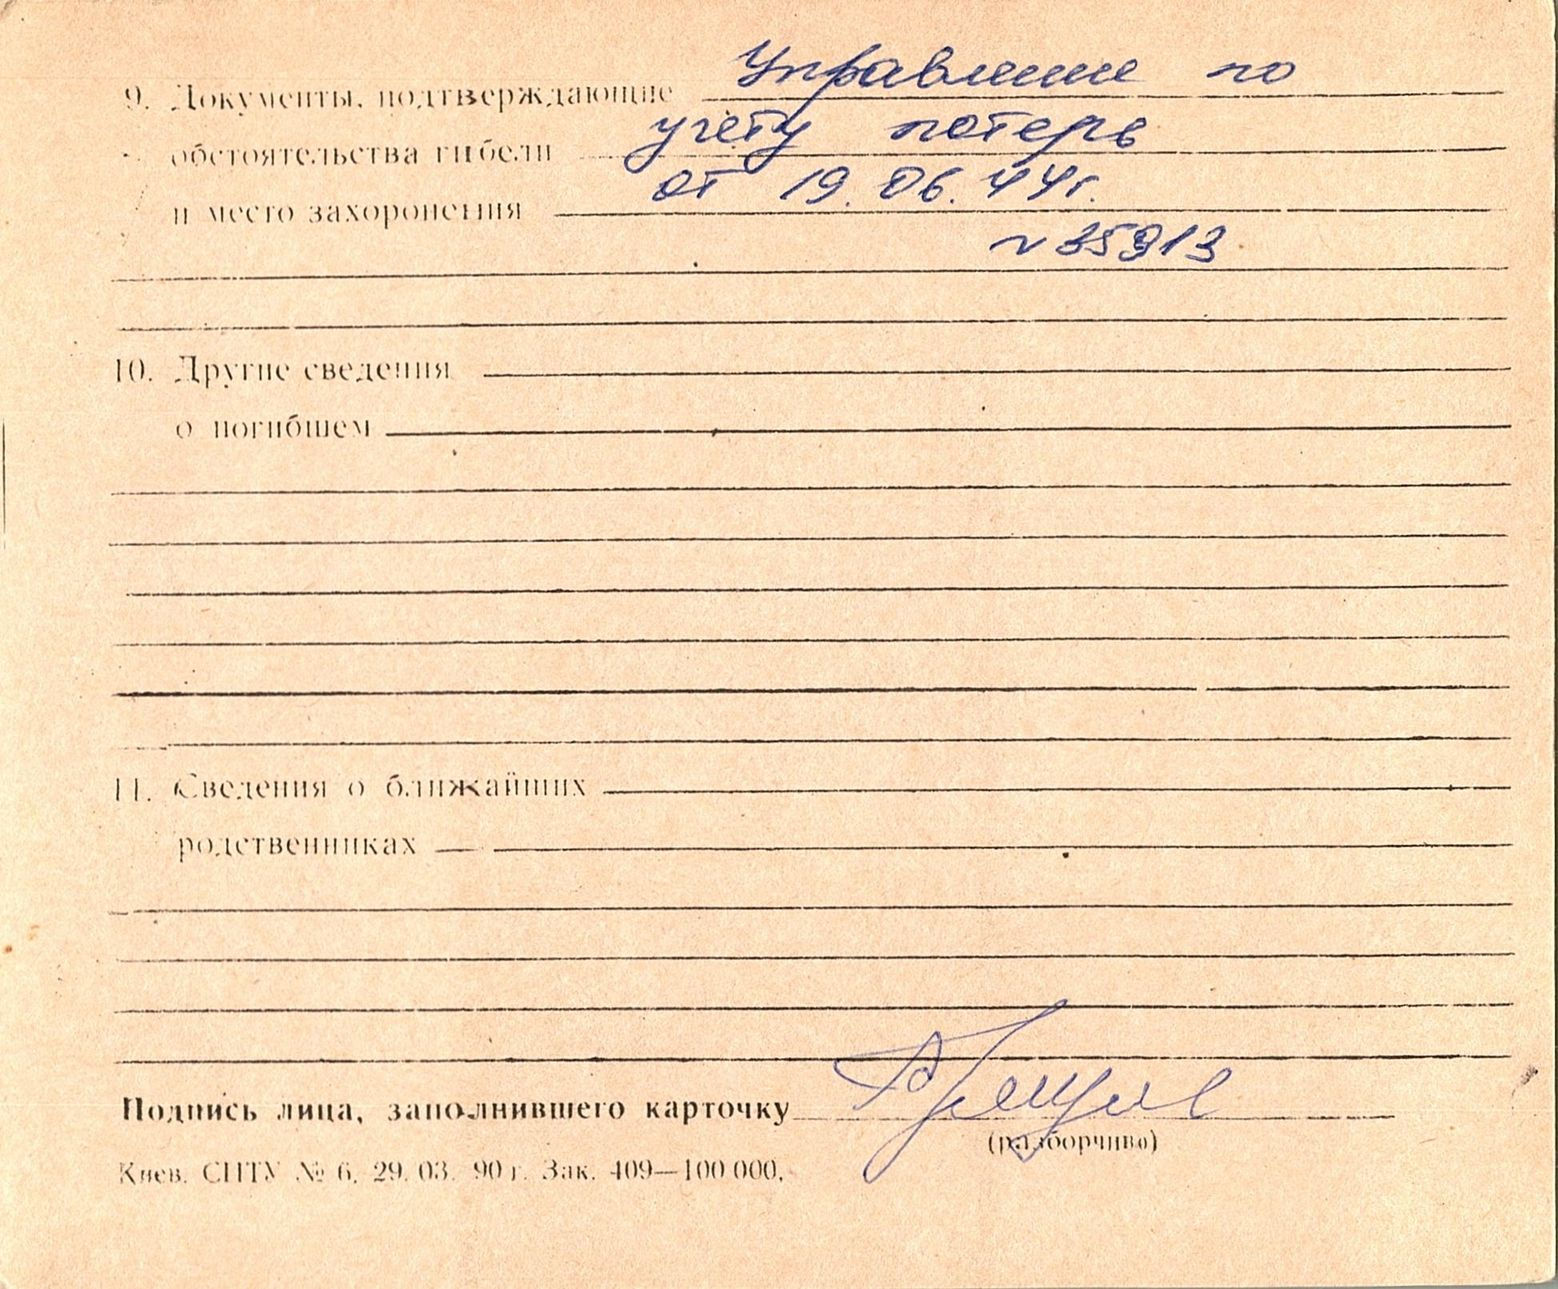 Управление по
9. Документы, подтверждающие
учету потерь
обстоятельства гибели
от 19.06.44г.
и место захоронения
№ 35913
10. Другие сведения
о погибшем
11. Сведения о ближайших
родственниках
Подпись лица, заполнившего карточку
(разборчиво)
Киев. СПТУ № 6. 29. 03. 90 г. Зак. 409—100 000.